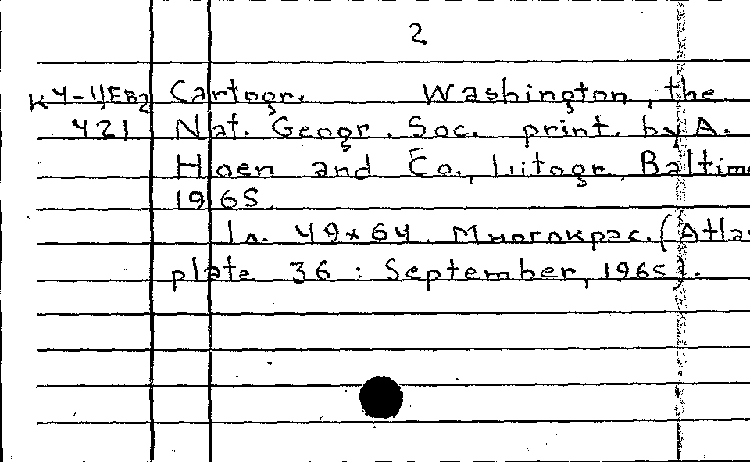 2
К 4-4/ЕВ2 Cartogr. Washington, the
421 Nat. Geogr. Soc. print. by A.
Hoen and Co., Litogr. Baltim
1965.
1л. 49×64. Многокрас. (Atla
plate 36 : September, 1965).